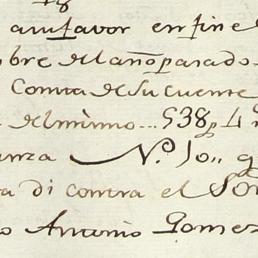 a su favor en fin de
bre del año pasado
Conta de su cuente
del mismo... 538p 4
anza Nº 10,, q
a di contra el So
o Antonio Gomez